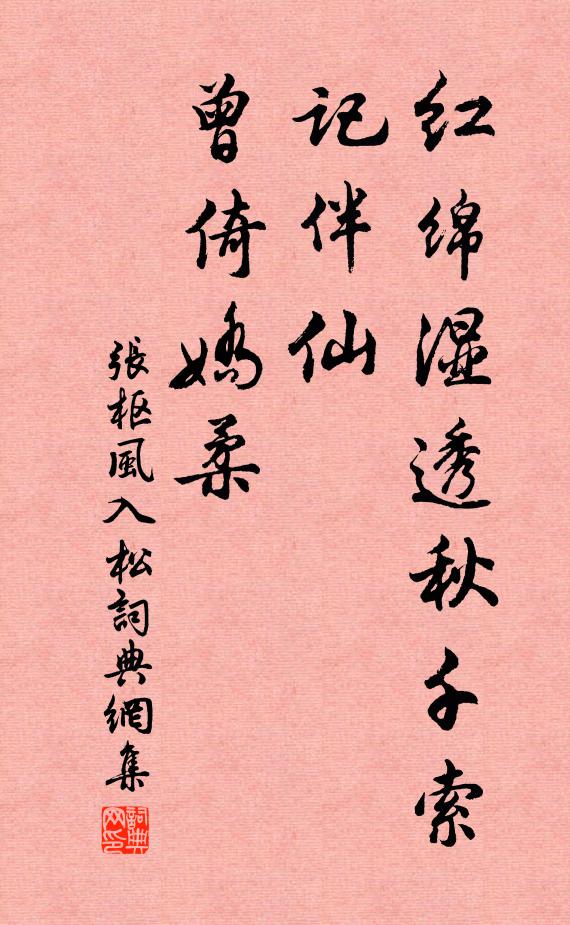 红绵湿透秋千索
记伴仙
曾倚娇柔
張枢風入松詞典網集
詞典网印